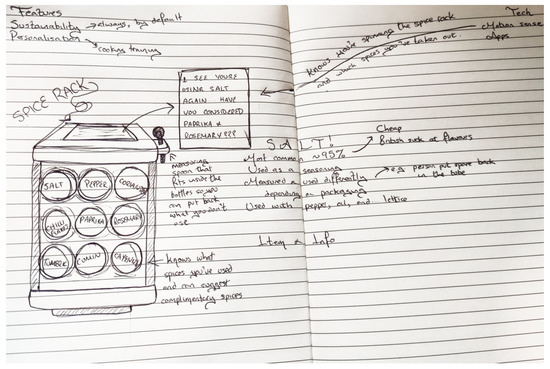 Features
Sustainability → always, by default
Personalisation → cooking training
SPICE RACK
I SEE YOU'RE
USING SALT
AGAIN HAVE
YOU CONSIDERED
PAPRIKA &
ROSEMARY???
SALT
PEPPER
CHILLI
FLAKES
PAPRIKA
ROSEMARY
CUMIN
measuring
spoon that
fits inside the
bottles so you
can put back
what you don't
use
knows what
spices you've used
and can suggest
complimentary spices
Tech
Motion sense
Apps
knows you're spinning the spice rack
and which spices you've taken out.
SALT!
Most common ~95%
Cheap
British suck at flavours
Used as a seasoning
Measured & used differently
depending on packaging
e.g. person put spare back
in the tube
Used with pepper, oil, and lettice
Item & Info